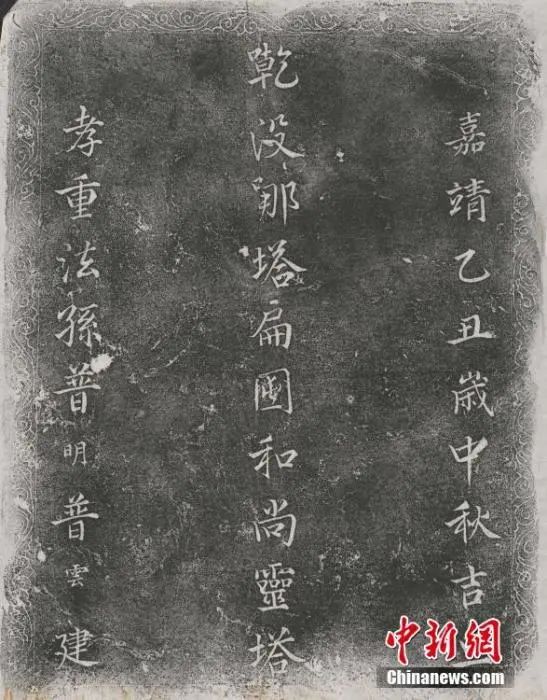 嘉靖乙丑歲中秋吉
乾没那塔扁囤和尚靈塔
孝重法孫普明普雲建
中新網
Chinanews.com